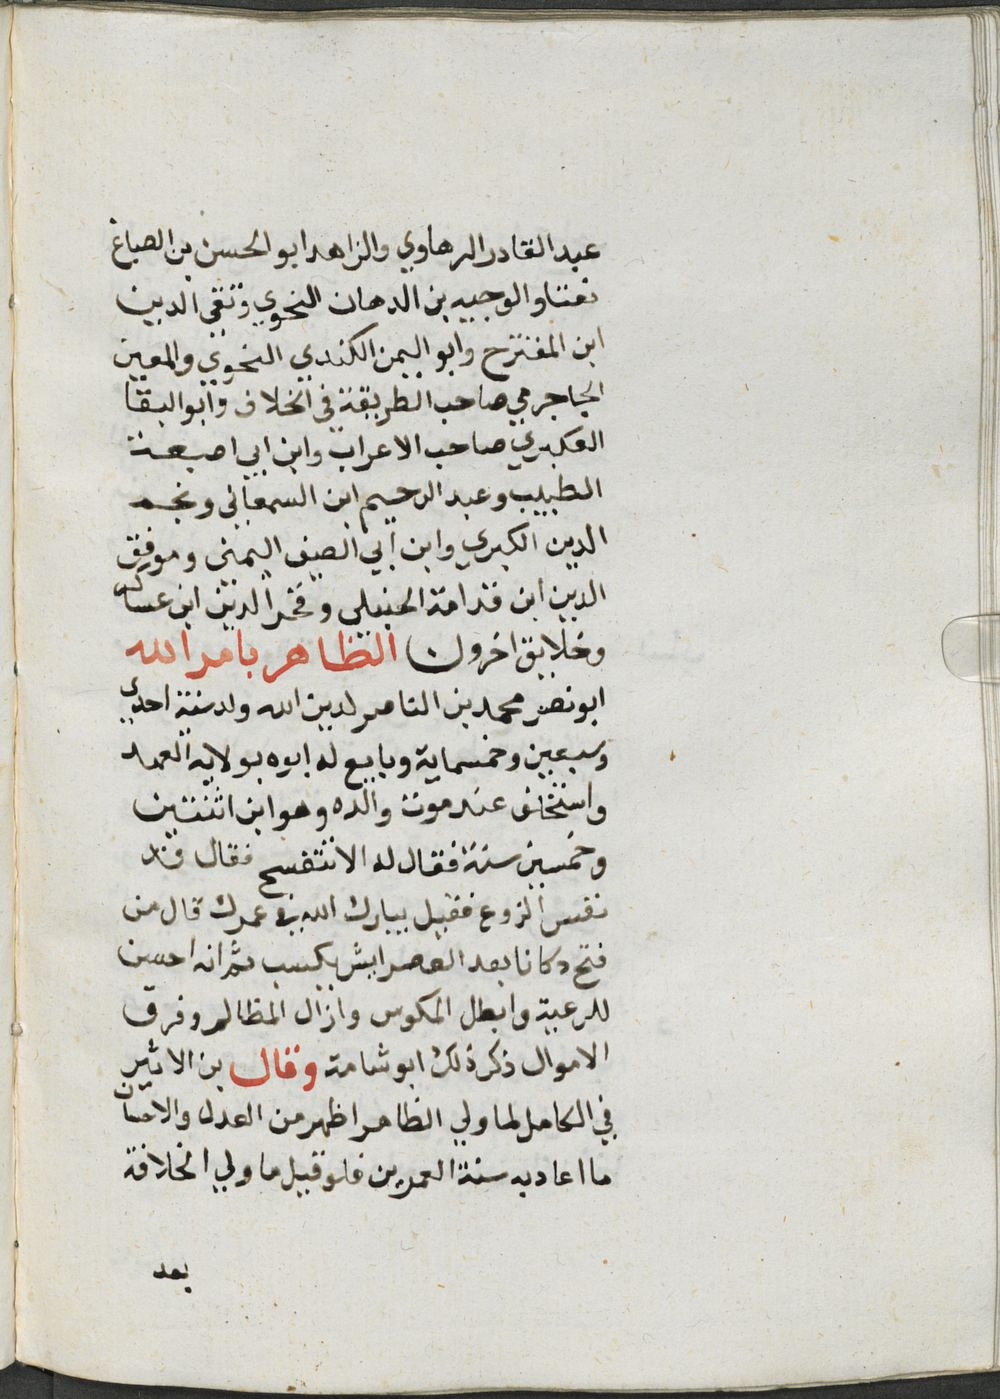 عبد القادر الرهاوي والزاهد ابو الحسن بن الصباغ
بقنا والوجيه بن الدهان النحوي وتقي الدين
ابن المقترح وابو اليمن الكندي النحوي والمعين
الجاجرمي صاحب الطريقة في الخلاف وابو البقا
العكبري صاحب الاعراب وابن ابي اصيبعة
الطبيب وعبد الرحيم ابن السمعاني ونجم
الدين الكبري وابن ابي الصيف اليمني وموفق
الدين ابن قدامة الحنبلي وفخر الدين ابن عساكر
وخلايق اخرون الظاهر بامر الله
ابو نصر محمد بن الناصر لدين الله ولد سنة احدي
وسبعين وخمسماية وبايع له ابوه بولاية العهد
واستخلف عند موت والده وهو ابن اثنتين
وخمسين سنة فقال له الا تتفسح فقال قد
نفس الزرع فقيل يبارك الله في عمرك قال من
فتح دكانا بعد العصر ايش يكسب ثم انه احسن
للرعية وابطل المكوس وازال المظالم وفرق
الاموال ذكر ذلك ابو شامة وقال بن الاثير
في الكامل لما ولي الظاهر اظهر من العدل والاحسان
ما اعاد به سنة العمرين فلو قيل ما ولي الخلافة
بعد